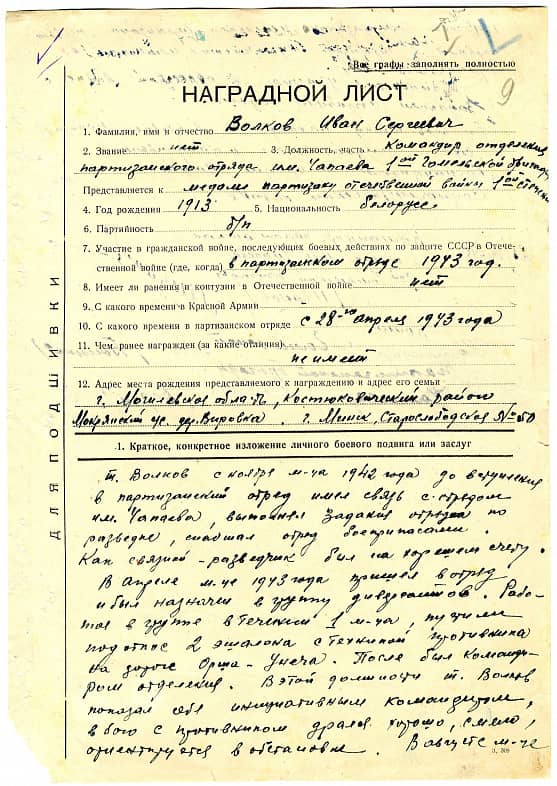 Все графы заполнять полностью
НАГРАДНОЙ ЛИСТ
9
1. Фамилия, имя и отчество Волков Иван Сергеевич
2. Звание нет 3. Должность, часть Командир отделения
партизанского отряда им. Чапаева 1ой Гомельской бригады
Представляется к медали партизану отечественной войны 1ой степени
4. Год рождения 1913 5. Национальность белорус
6. Партийность б/п
7. Участие в гражданской войне, последующих боевых действиях по защите СССР в Отече-
ственной войне (где, когда) в партизанском отряде 1943 год.
8. Имеет ли ранения и контузии в Отечественной войне нет
9. С какого времени в Красной Армии
10. С какого времени в партизанском отряде с 28-го апреля 1943 года
11. Чем ранее награжден (за какие отличия)
не имеет
12. Адрес места рождения представляемого к награждению и адрес его семьи
Могилевская обл., Костюковический район
Мокрянский с. дер. Вировка. г. Минск, Старослободская № 50
ДЛЯ ПОДШИВКИ
1. Краткое, конкретное изложение личного боевого подвига или заслуг
т. Волков с ноября м-ца 1942 года до вступления
в партизанский отряд имел связь с отрядом
им. Чапаева, выполнял задания отряда по
разведке, снабжал отряд боеприпасами.
Как связной-разведчик был на хорошем счету.
В апреле м-це 1943 года пришел в отряд
и был назначен в группу диверсантов. Рабо-
тая в группе в течении 1 м-ца, пустили
под откос 2 эшалона с техникой противника
на дороге Орша - Унеча. После был команди-
ром отделения. В этой должности т. Волков
показал себя инициативным командиром,
в бою с противником дрался хорошо, смело,
ориентируется в обстановке. В августе м-це